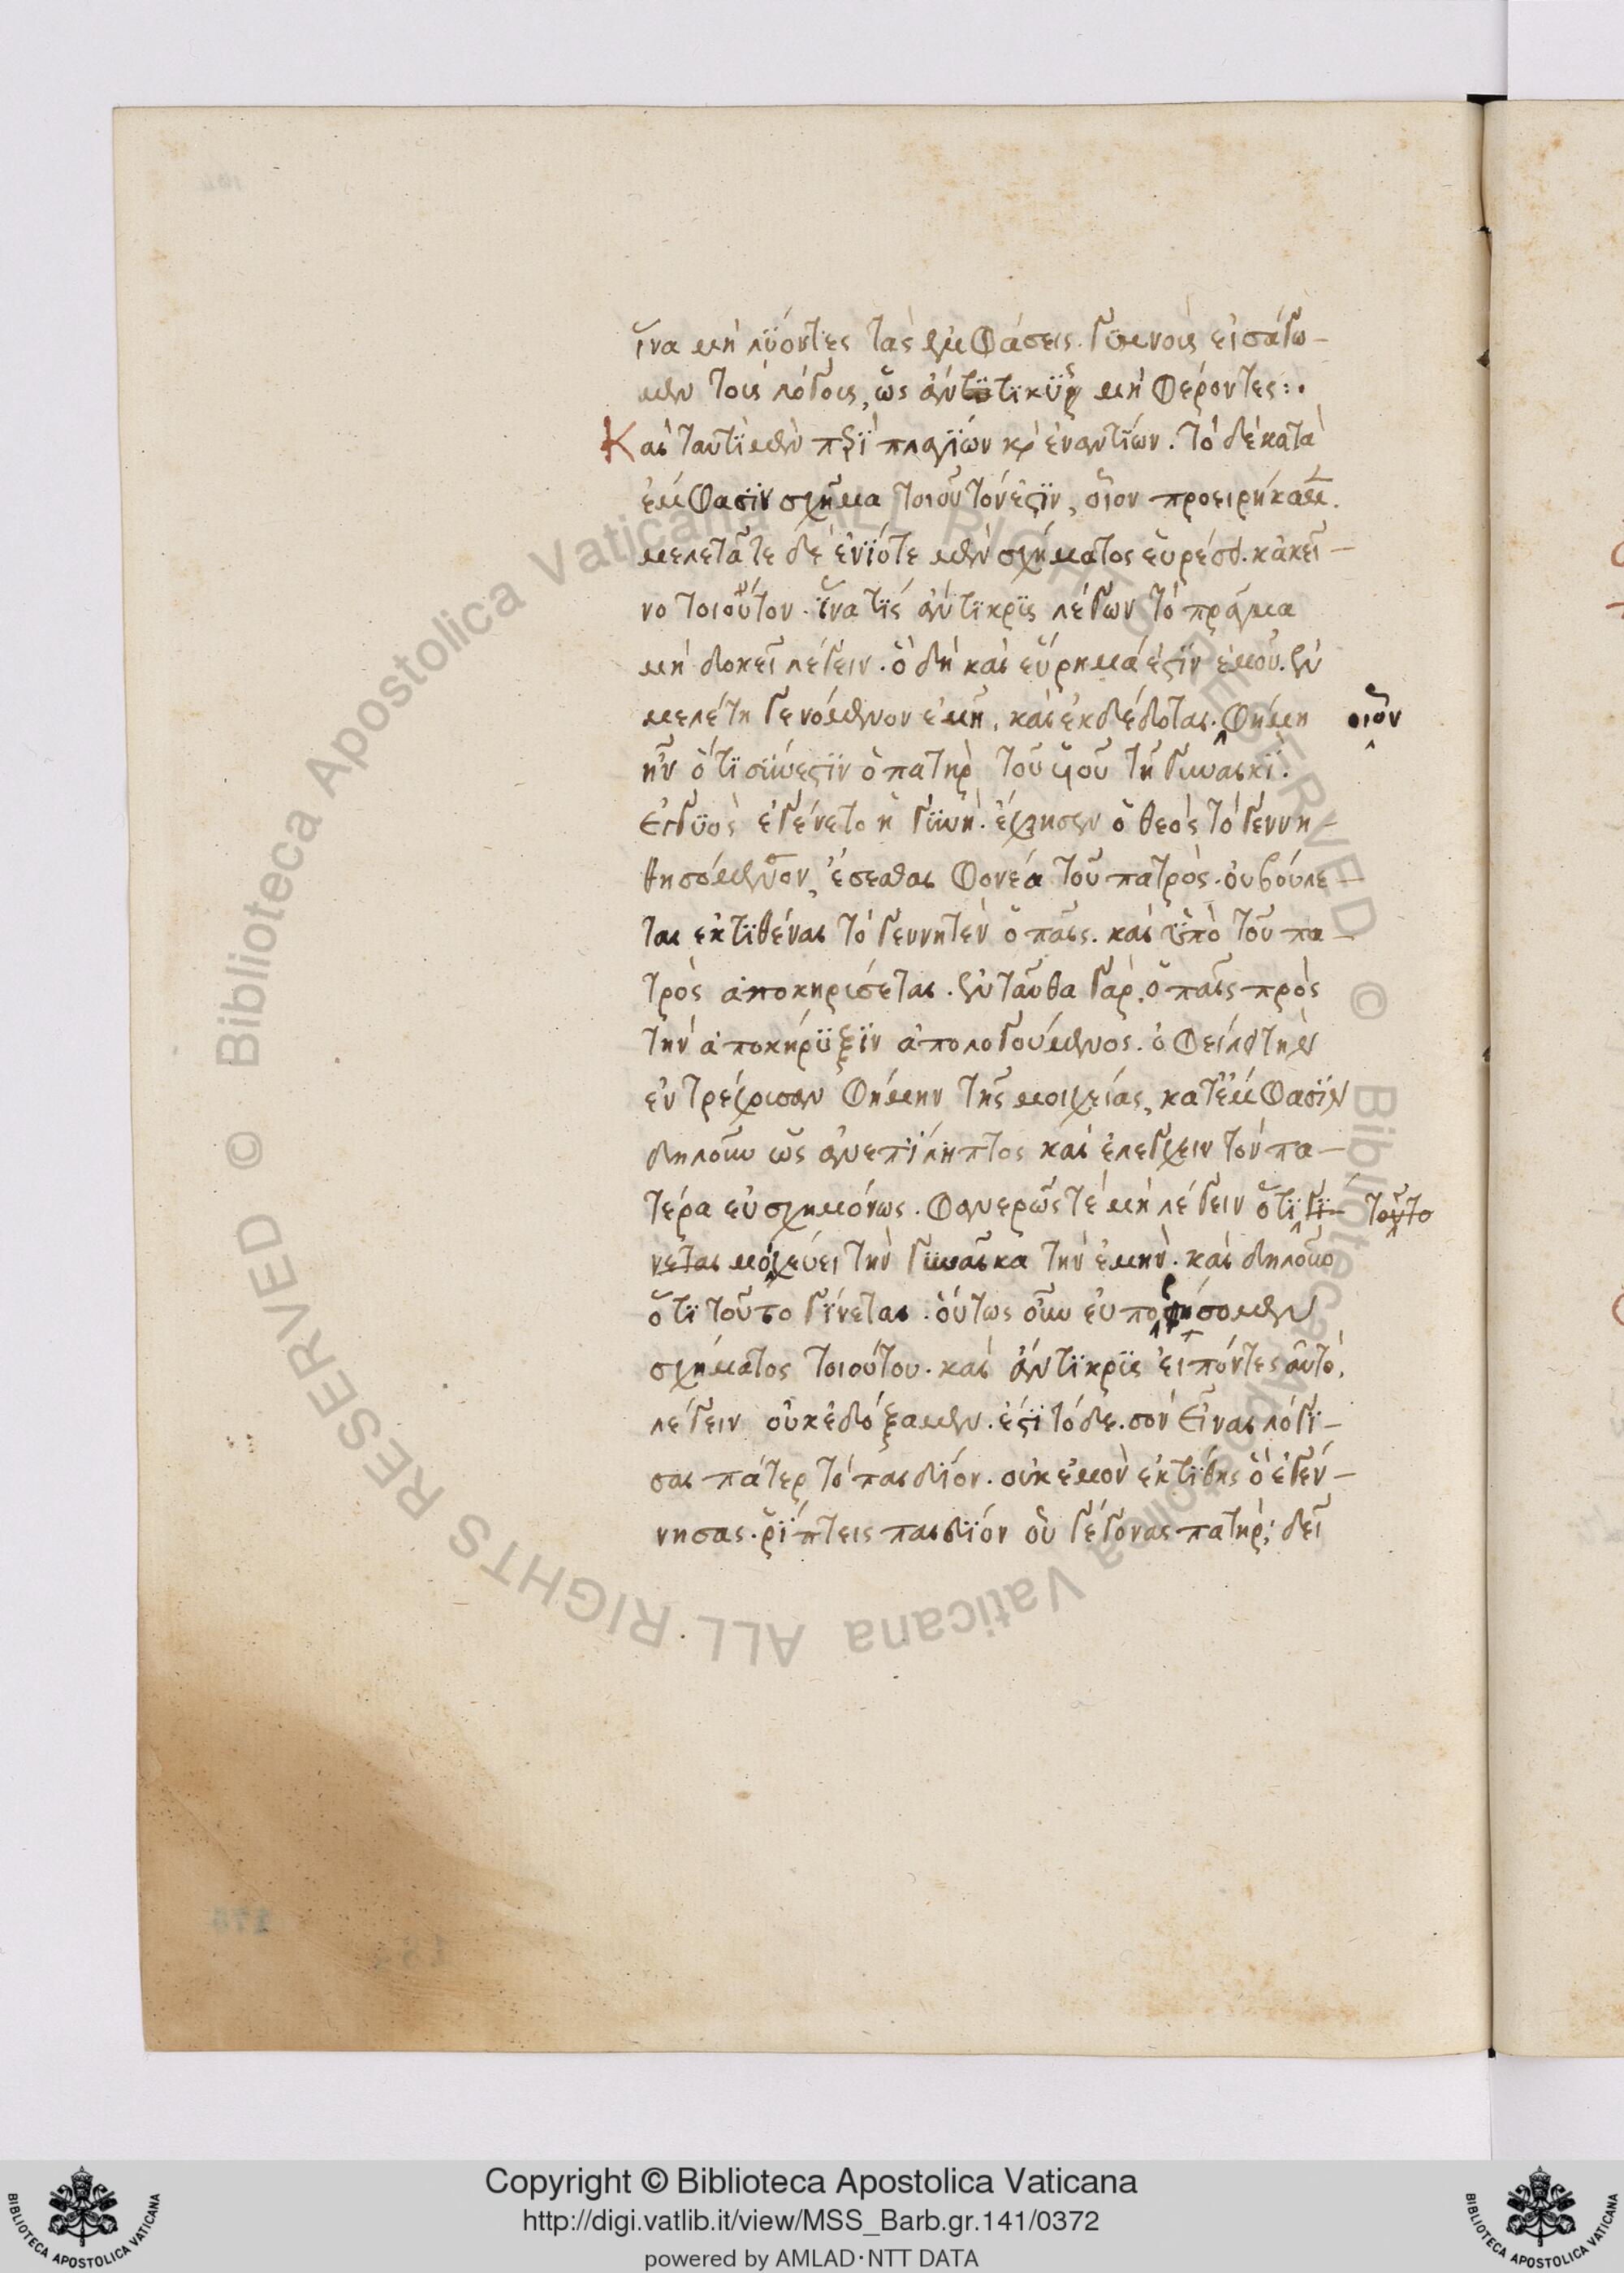 ἵνα μὴ λύοντες τὰς ἐμφάσεις. γυμνοὺς εἰσάγω-
μεν τοὺς λόγους, ὡς ἀντϊτικϋρ μὴ φέροντες:·
Καὶ ταυτὶ μὲν περὶ πλαγίων καὶ ἐναντίων. τὸ δὲ κατὰ
ἔμφασϊν σχῆμα τοιοῦτόν ἐστϊν, οἷον προειρήκαμεν.
μελετᾶτε δὲ ἐνίοτε μὲν σχήματος εὑρέσει. κἀκεῖ-
νο τοιοῦτον. ἵνα τϊς ἀντϊκρϊς λέγων τὸ πρᾶγμα
μὴ δοκεῖ λέγειν. ὃ δὴ καὶ εὕρημά ἐστϊν ἐμοῦ. ἐν
μελέτη γενόμενον ἐμῆ, καὶ ἐκδέδοται. φήμη οἷον
ἦν ὅτϊ σύνεστϊν ὁ πατὴρ τοῦ υἱοῦ τῆ γυναικΐ.
Ἔγγϋος ἐγένετο ἡ γϋνή. ἔχρησεν ὁ θεὸς τὸ γεννη-
θησόμενον, ἔσεσθαι φονέα τοῦ πατρὸς. οὐ βούλε-
ται ἐκτϊθέναι τὸ γεννητὲν ὁ παῖς. καὶ ϋπὸ τοῦ πα-
τρὸς ἀποκηρίσεται. ἐνταῦθα γὰρ. ὁ παῖς πρὸς
τὴν ἀποκήρϋξϊν ἀπολογούμενος. ὀφείλει τὴν
ἐντρέχουσαν φήμην τῆς μοιχείας, κατ' ἔμφασϊν
δηλοῦν ὡς ἀνεπίληπτος καὶ ἐλέγχειν τὸν πα-
τέρα εὐσχημόνως. φανερῶς τὲ μὴ λέγειν ὅτϊ γΐ- τοῦτο
νεται μοϊχεύει τὴν γϋναῖκα τὴν ἐμὴν. καὶ δηλοῦν
ὅτϊ τοῦτο γΐνεται. οὕτως οὖν εὐπορήσομεν
σχήματος τοιούτου. καὶ ἀντϊκρϊς εἰπόντες αὐτὸ,
λέγειν οὐκ ἐδόξαμεν. ἐστϊ τόδε. σὸν εἶναι λόγϊ-
σαι πάτερ τὸ παιδίον. οὐκ ἐμὸν ἐκτϊθης ὃ ἐγέν-
νησας. ῥΐπτεις παιδΐον οὗ γέγονας πατὴρ; δεῖ
Copyright © Biblioteca Apostolica Vaticana
http://digi.vatlib.it/view/MSS_Barb.gr.141/0372
powered by AMLAD·NTT DATA
BIBLIOTECA APOSTOLICA VATICANA
BIBLIOTECA APOSTOLICA VATICANA
© Biblioteca Apostolica Vaticana ALL RIGHTS RESERVED © Biblioteca Apostolica Vaticana ALL RIGHTS RESERVED